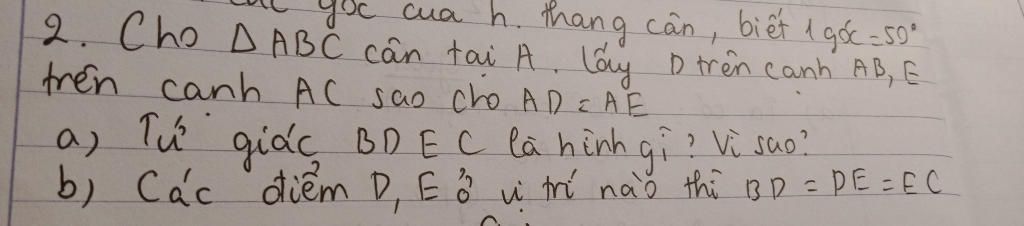 góc cua h. thang cân, biết 1 góc = 50°
2. Cho Δ ABC cân tại A. lấy D trên cạnh AB, E
trên cạnh AC sao cho AD = AE
a) Tứ giác BDEC là hình gì? Vì sao?
b) Các điểm D, E ở vị trí nào thì BD = DE = EC